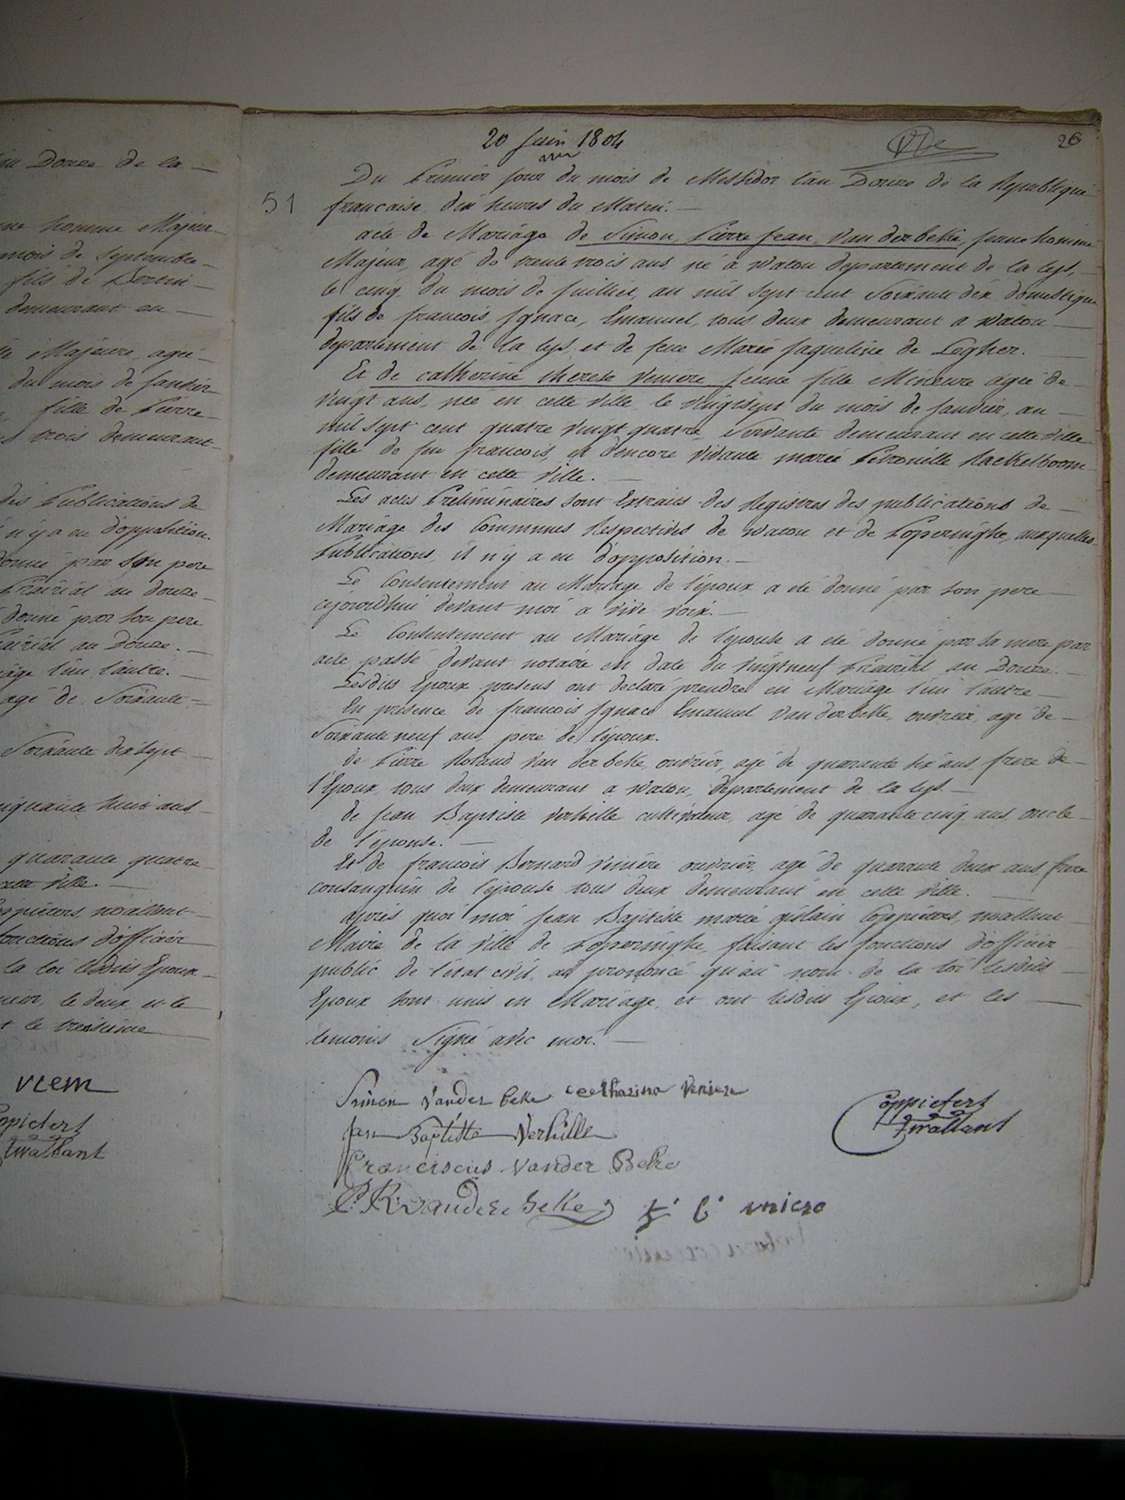 in Douze de la —
ne homme Majeur
mois de Septembre
fils de
demeurant au —
Majeure, agée
du mois de Janvier
fille de Pierre
trois demeurant
des Publications de
il n'y a eu d'opposition.
donné par son pere
Prairial an douze
donné par son pere
Prairial an Douze. —
l'un l'autre. —
agé de Soixante
Soixante dix Sept
cinquante huit ans
quarante quatre
ville. —
Coppieters, Nwallant
fonctions d'officier
la loi lesdits Epoux
le deux et le
et le troisieme
vrem
Coppieters
Nwallant
20 Juin 1804
26
51
Du Premier jour du mois de Messidor l'an Douze de la Republique
francaise, dix heures du Matin. —
acte de Mariage de Simon, Pierre Jean, Vanderbeke, jeune homme
Majeur, agé de trente trois ans, né à Watou departement de la Lys, —
le cinq du mois de Juillet, an mil Sept cent Soixante dix domestique
fils de francois, Ignace, Emanuel, tous deux demeurant a Watou —
departement de la Lys, et de feue Marie Jaqueline de
Et de catherine therese veniere jeune fille Mineure agée de —
vingt ans, née en cette ville le vingtsept du mois de Janvier, an —
Mil sept cent quatre vingt quatre Servante demeurant en cette ville
fille de feu francois, et d'encore vivante marie Petronille Hackelboom
demeurant en cette ville. —
Les actes Préliminaires sont Extraits des Registres des publications de —
Mariage des Communes Respectives de Watou et de Poperinghe, auxquelles
Publications, il n'y a eu d'opposition. —
Le Consentement au Mariage de l'époux a été donné par son pere —
cejourdhui devant moi a vive voix. —
Le Consentement au Mariage de l'epouse a eté donné par sa mere par
acte passé devant notaire en date du vingtneuf Prairial an Douze. —
Lesdits Epoux presens ont declaré prendre en Mariage l'un l'autre —
En présence de francois Ignace Emanuel Vanderbeke, ouvrier, agé de —
Soixante neuf ans pere de l'époux.
de Pierre Roland Van der beke, ouvrier, agé de quarante six ans, frere de —
l'Epoux tous deux demeurant a Watou, departement de la Lys. —
de Jean Baptiste Verhille cultivateur, agé de quarante cinq ans oncle —
de l'épouse. —
Et de francois Bernard Veniere ouvrier, agé de quarante deux ans frere
consanguin de l'epouse tous deux demeurant en cette ville. —
Après quoi moi Jean Baptiste marie Gislain Coppieters, Nwallant —
Maire de la ville de Poperinghe, faisant les fonctions d'officier
public de l'état civil, ai prononcé qu'au nom de la loi lesdits —
Epoux sont unis en Mariage, et ont lesdits Epoux, et les —
temoins Signé avec moi. —
Simon Vander beke Catharina Veniere
Jan Baptiste Verhille
Franciscus Vander Beke
P. R. vandere beke f. b. vniere
Coppieters
Nwallant